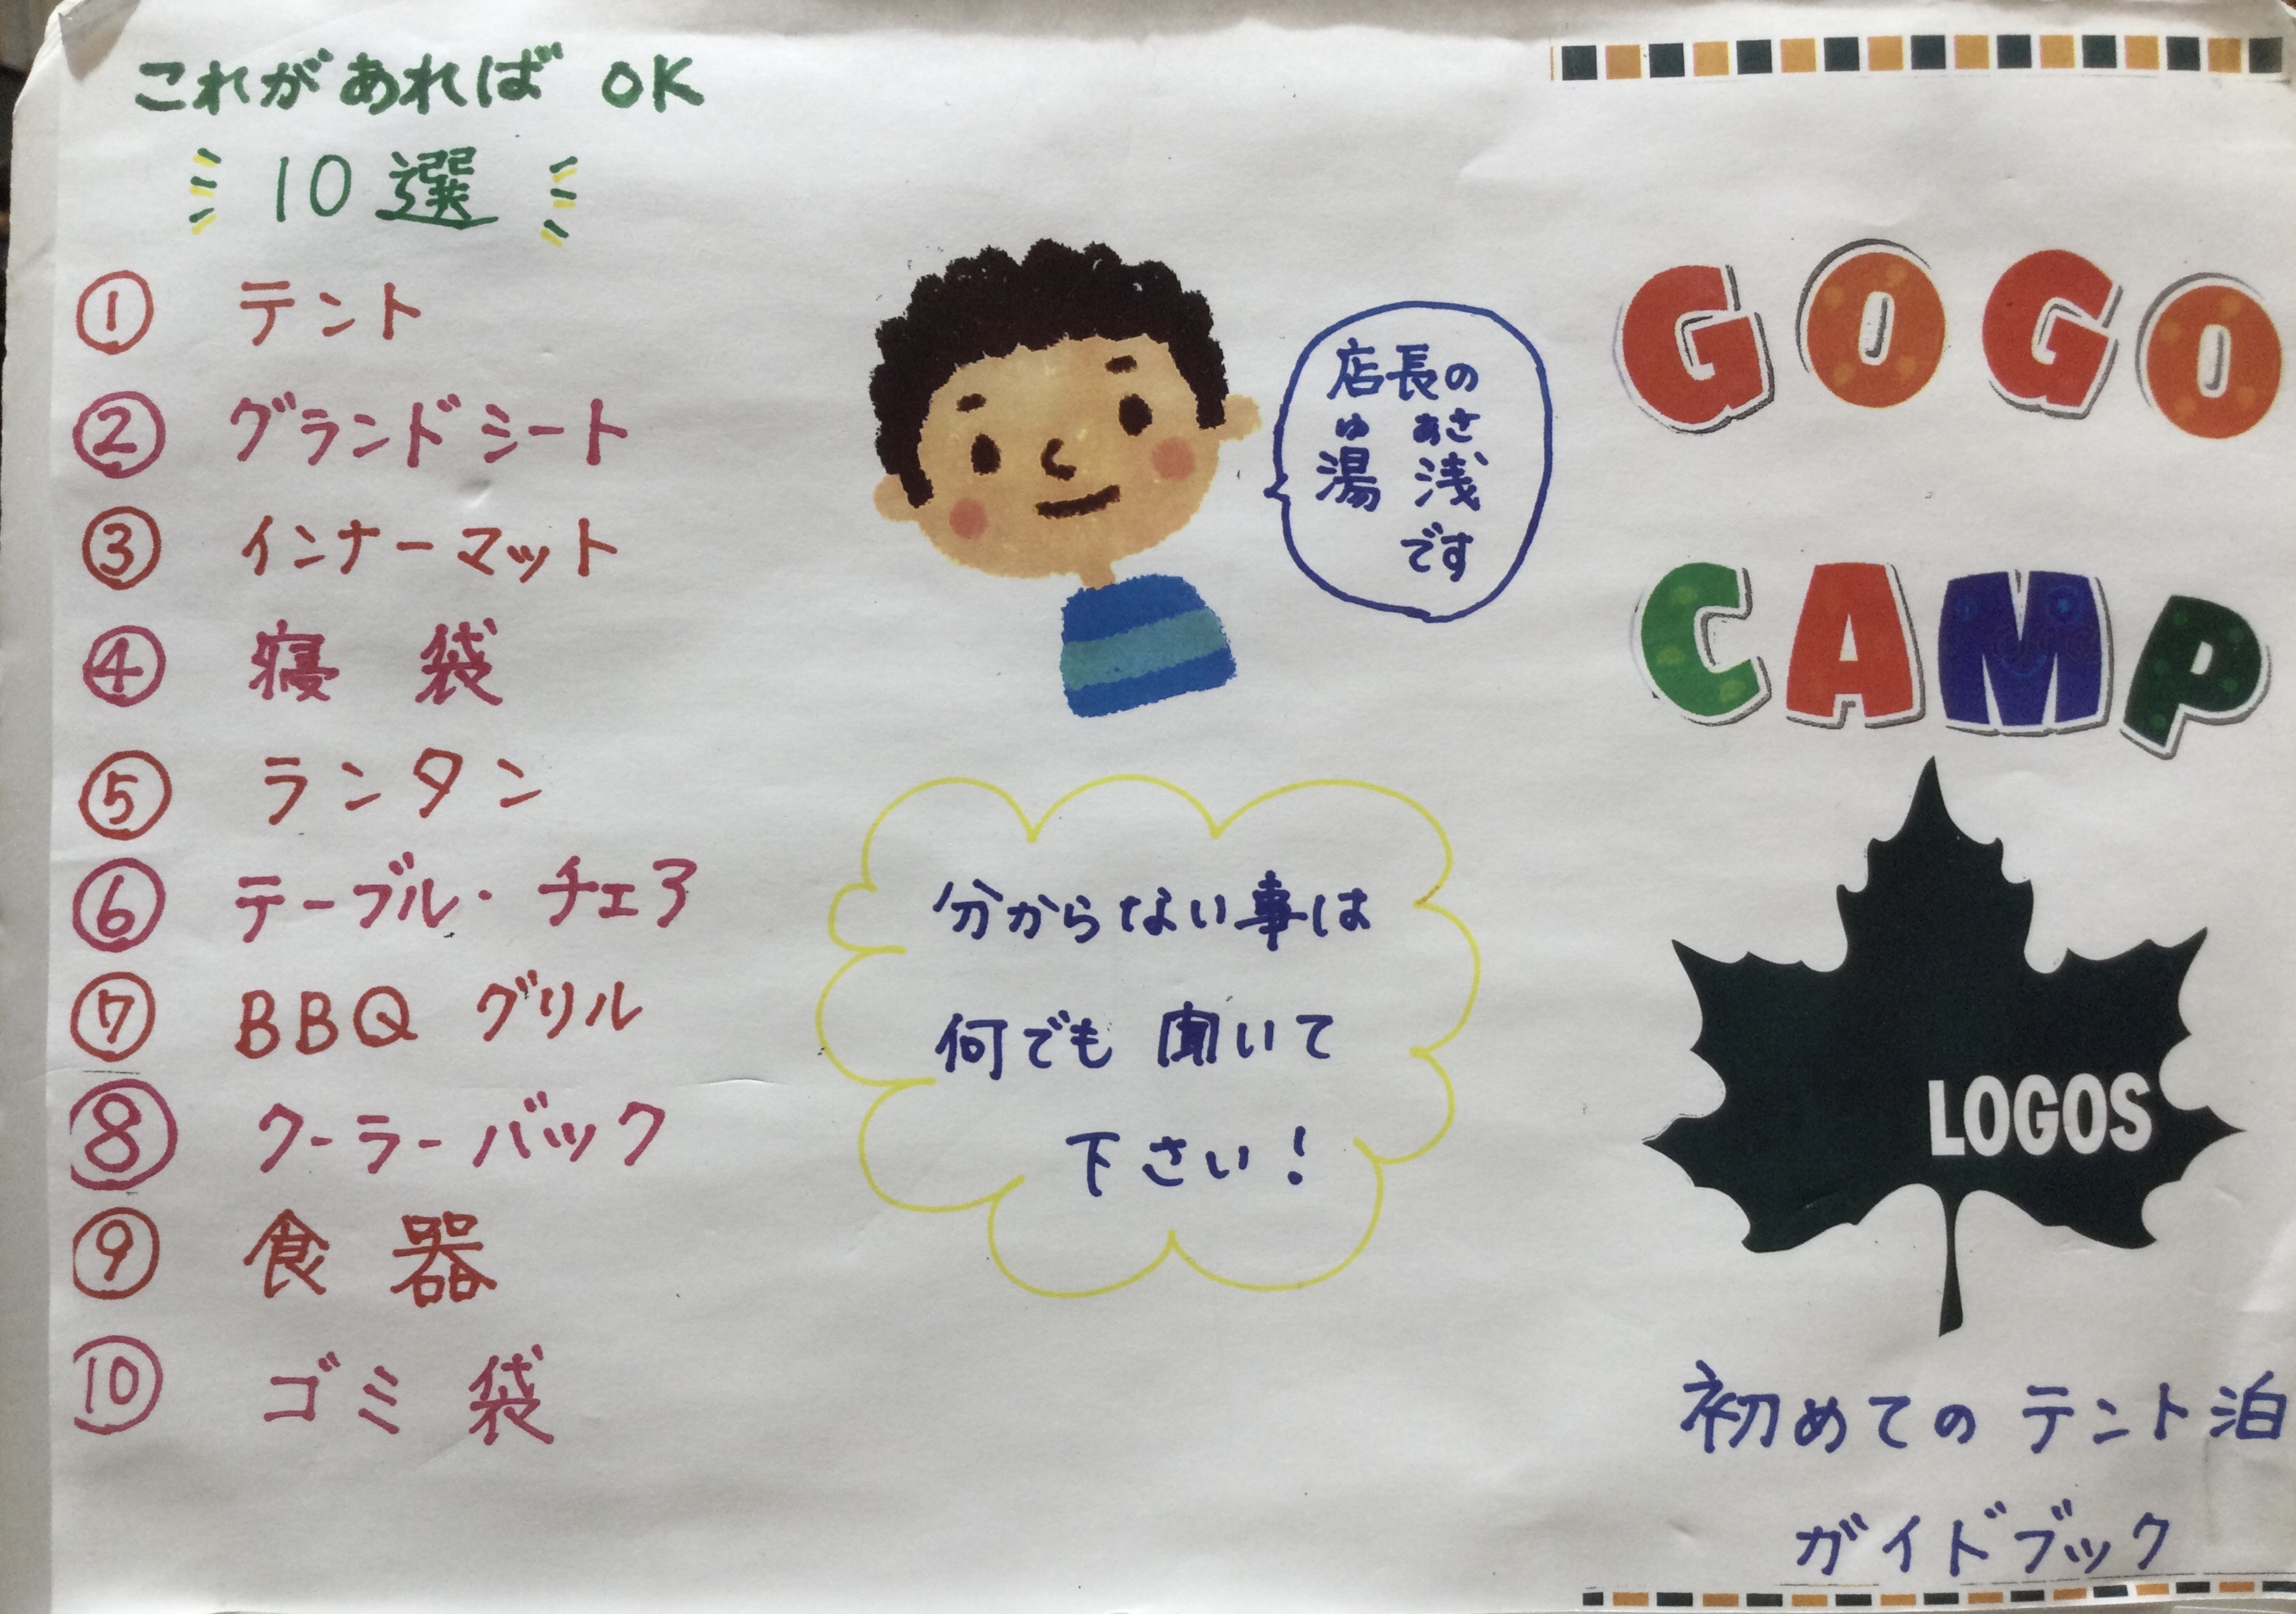 これがあれば OK
10選
① テント
② グランドシート
③ インナーマット
④ 寝袋
⑤ ランタン
⑥ テーブル・チェア
⑦ BBQ グリル
⑧ クーラーバック
⑨ 食器
⑩ ゴミ袋
店長の
ゆ あさ
湯 浅
です
分からない事は
何でも聞いて
下さい!
GOGO
CAMP
LOGOS
初めてのテント泊
ガイドブック